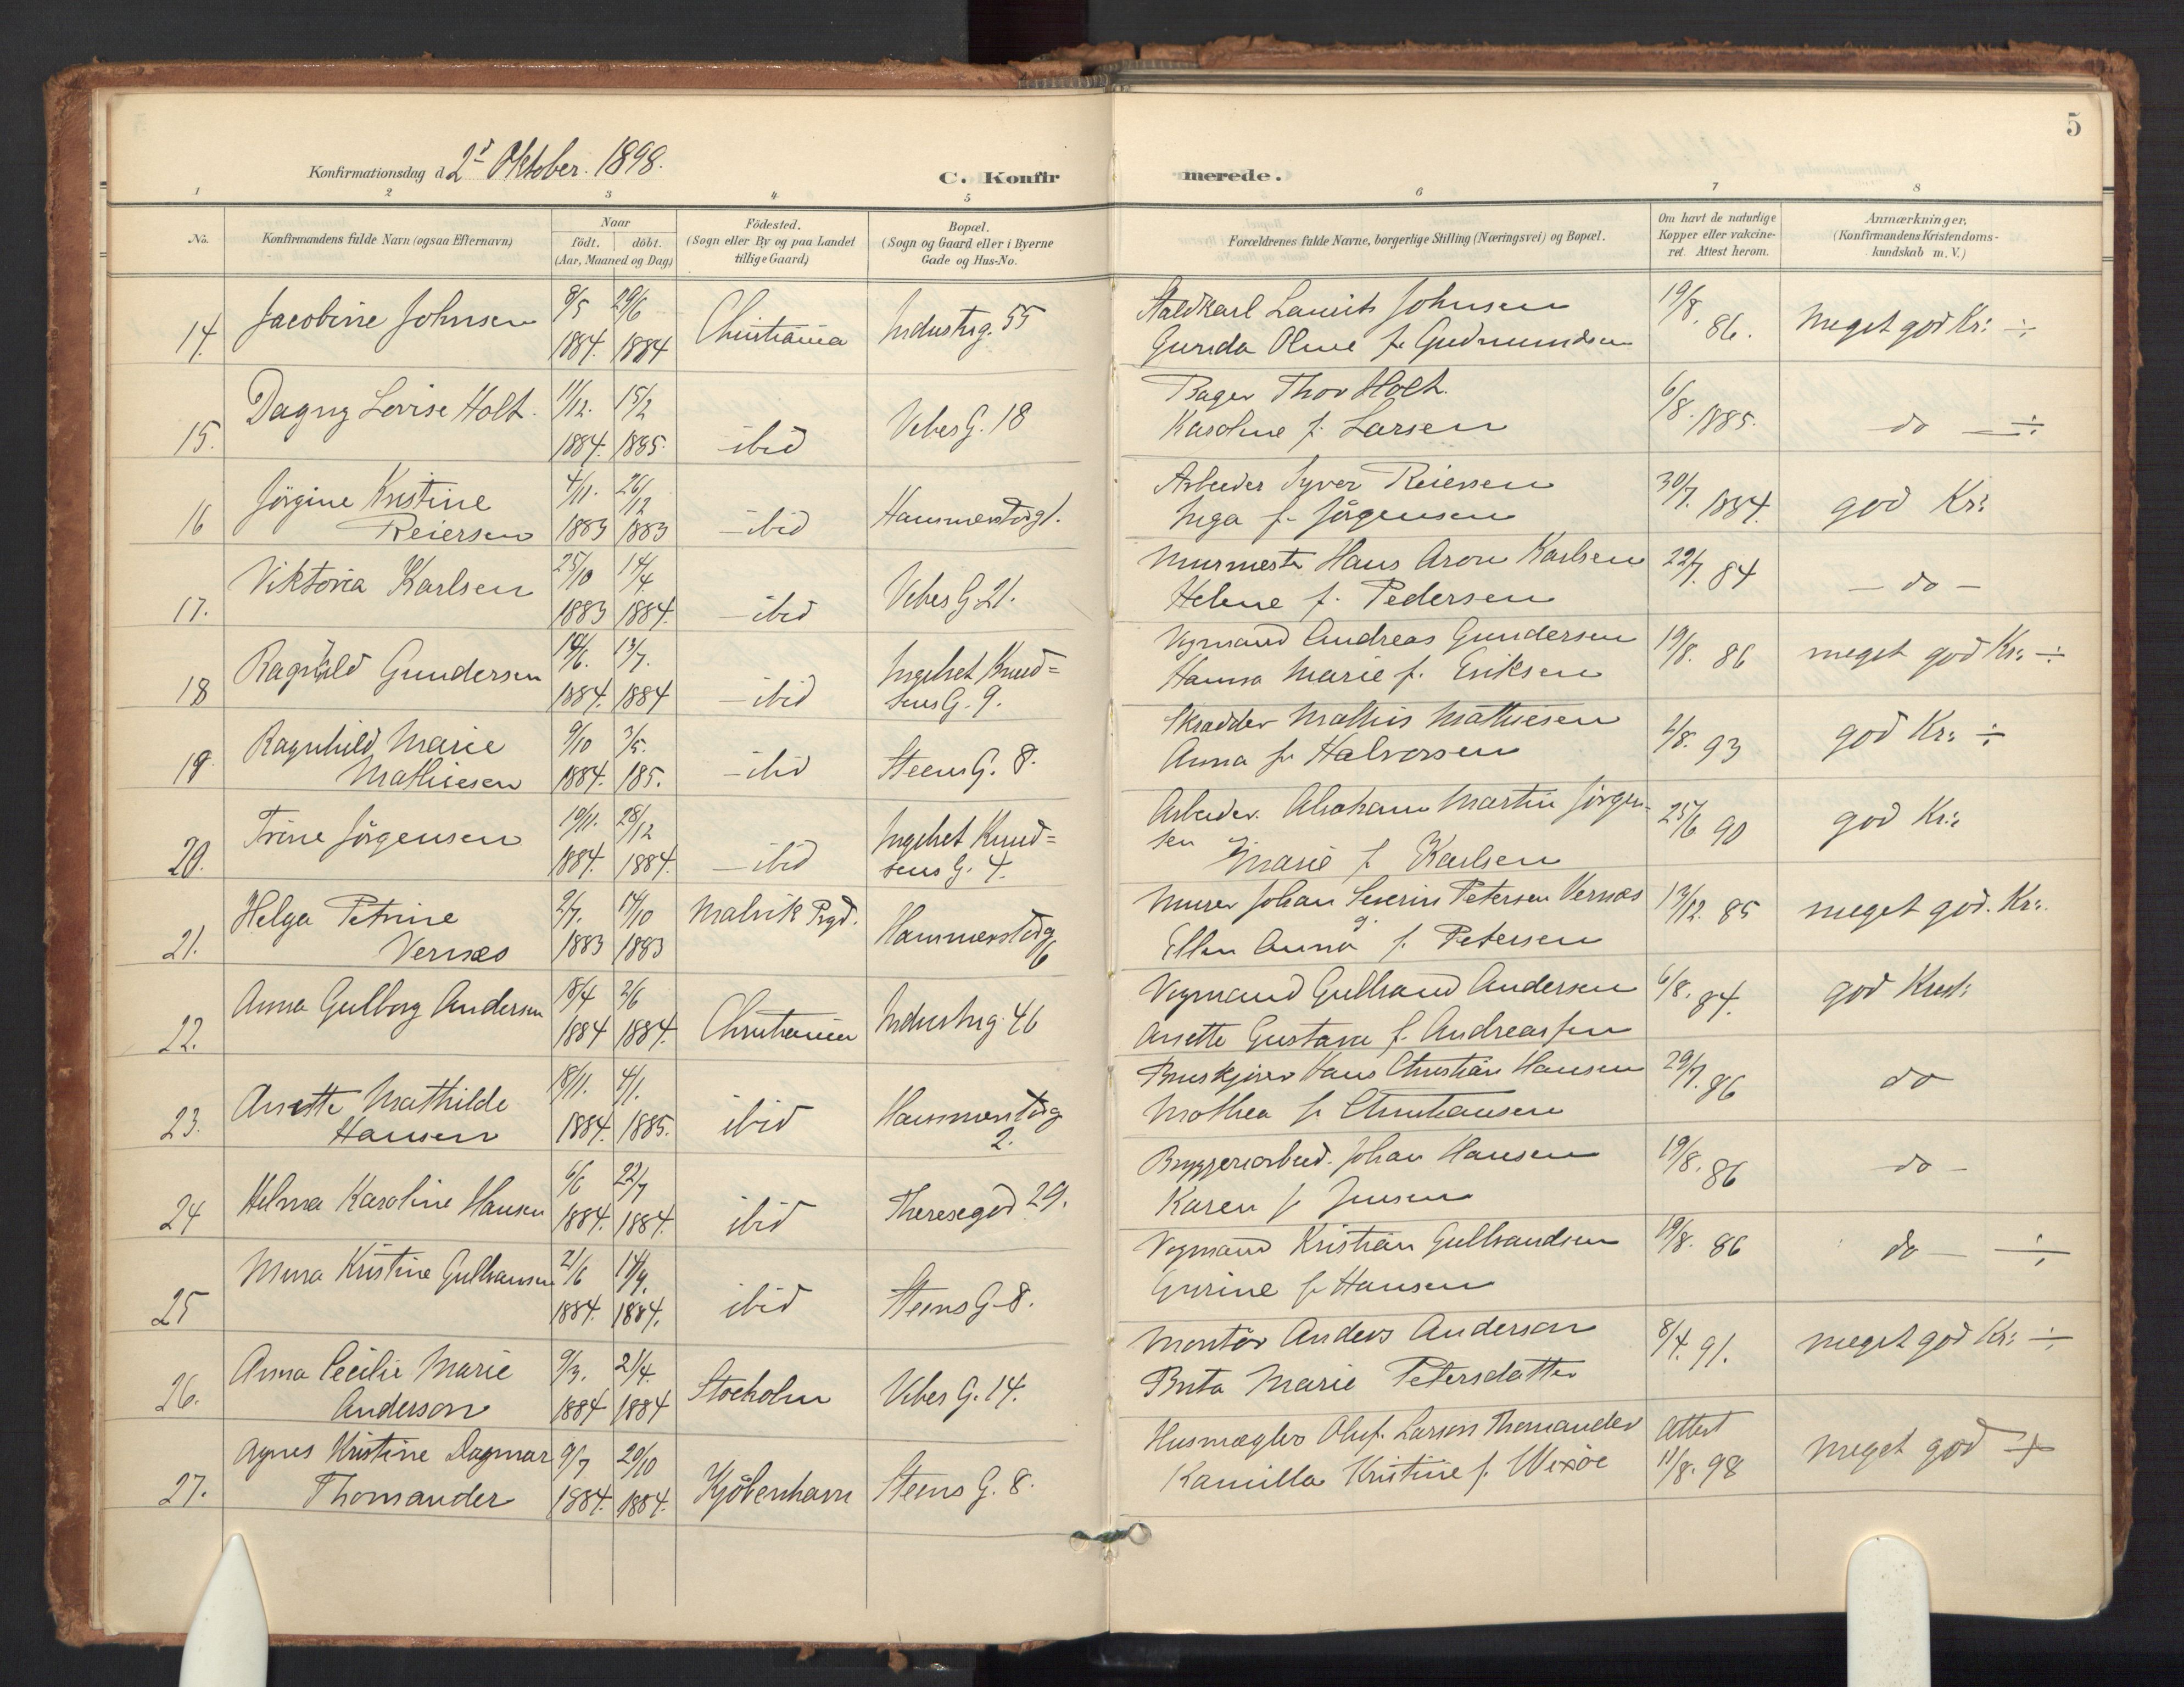 5
Konfirmationsdag d. 2d Oktober. 1898.
C. Konfirmerede.
1 2 3 4 5 6 7 8
No.
Konfirmandens fulde Navn (ogsaa Efternavn)
Naar
födt. döbt.
(Aar, Maaned og Dag)
Födested.
(Sogn eller By og paa Landet
tillige Gaard)
Bopæl.
(Sogn og Gaard eller i Byerne
Gade og Hus-No.
Forældrenes fulde Navne, borgerlige Stilling (Næringsvei) og Bopæl.
Om havt de naturlige
Kopper eller vakcine-
ret. Attest herom.
Anmærkninger,
(Konfirmandens Kristendoms-
kundskab m. V.)
14. Jacobine Johnsen 8/5 1884. 29/6 1884 Christiania Industrig. 55
Staldkarl Lauritz Johnsen
Gunda Oline f. Gudmundsen
19/8. 86. Meget god Kr: ÷
15. Dagny Lovise Holt. 11/12. 1884. 15/2 1885. ibid Vibes G. 18
Bager Thor Holt.
Karoline f. Larsen
6/8. 1885. do ÷
16 Jörgine Kristine
Reiersen 4/11. 1883 26/12 1883 ibid
Arbeider Syver Reiersen
Inga f. Jörgensen
30/7. 1884. god Kr:
17. Viktoria Karlsen 25/10 1883 14/4 1884. ibid Vibes G. 21.
Murmester Hans Aron Karlsen
Helene f. Pedersen
22/7. 84 - do -
18 Ragnhild Gundersen 1884. 13/7. 1884 ibid Ingebret Knud=
sens G. 9.
Vognmand Andreas Gundersen
Hanna Marie f. Eriksen
19/8. 86 meget god Kr: ÷
19. Ragnhild Marie
Mathiesen 9/10 1884. 3/5. 185. ibid Steens G. 8.
Skrædder Mathis Mathiesen
Anna f. Halvorsen
2/8. 93 god Kr: ÷
20. Trine Jörgensen 19/11. 1884. 28/12 1884. ibid Ingebret Knud=
sens G. 4.
Arbeider. Abraham Martin Jörgen-
sen
Marie f. Karlsen
25/6 90 god Kr:
21. Helga Petrine
Vernæs 2/7. 1883 14/10 1883 Malvik Prgd. Hammerstadg 6
Murer Johan Severin Petersen Vernæs
Ellen Anna f. Petersen
13/12. 85 meget god. Kr:
22. Anna Gulborg Andersen 18/4 1884 2/6 1884. Christiania Industrig. 46
Vognmand Gulbrand Andersen
Anette Gustava f. Andreassen
6/8. 84. god Krist:
23. Anette Mathilde
Hansen 18/11. 1884. 4/1. 1885. ibid Hammerstadg
2.
Hans Christian Hansen
Mathea f. Christiansen
29/7. 86 do
24 Helma Karoline Hansen 6/6 1884. 22/7 1884. ibid Theresegad 29.
Bryggeriarbeid. Johan Hansen
Karen f. Jensen
19/8. 86 do -
25 Mina Kristine Gulbransen 21/6 1884. 14/9. 1884. ibid Steens G. 8.
Vognmand Kristian Gulbrandsen
Gurine f. Hansen
19/8. 86 do - ÷
26. Anna Cecilie Marie
Anderson 9/3. 1884 21/4. 1884 Stockholm Vibes G. 14.
Montör Anders Anderson
Brita Marie Petersdatter
8/4. 91. meget god Kr: ÷
27. Agnes Kristine Dagmar
Thomander 9/7 1884. 20/10 1884. Kjöbenhavn Steens G. 8.
Husmægler Oluf. Larsen Thomander
Kamilla Kristine f. Wexöe
Attest
11/8. 98 Meget god ÷